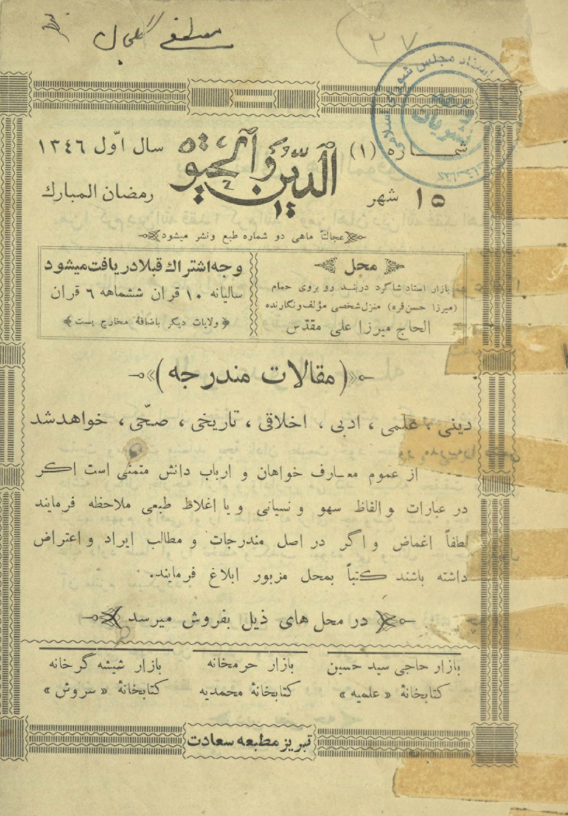 مصطفی
۲۷
اسناد مجلس شورای اسلامی
شماره (۱) الدین والحیوة سال اوّل ۱۳۴۶
۱۵ شهر رمضان المبارك
عجالة ماهی دو شماره طبع و نشر میشود
محل
بازار استاد شاگرد دربند رو بروی حمام
(میرزا حسن‌قره) منزل شخصی مؤلف و نگارنده
الحاج میرزا علی مقدّس
وجه اشتراك قبلا دریافت میشود
سالیانه ۱۰ قران ششماهه ۶ قران
ولایات دیگر باضافهٔ مخارج پست
(مقالات مندرجه)
دینی ، علمی ، ادبی ، اخلاقی ، تاریخی ، صحّی ، خواهد شد
از عموم معارف خواهان و ارباب دانش متمنّی است اگر
در عبارات و الفاظ سهو و نسیانی و یا اغلاط طبعی ملاحظه فرمایند
لطفاً اغماض و اگر در اصل مندرجات و مطالب ایراد و اعتراض
داشته باشند کتباً بمحل مزبور ابلاغ فرمایند.
در محل های ذیل بفروش میرسد
بازار حاجی سید حسین
کتابخانهٔ « علمیه »
بازار حرمخانه
کتابخانهٔ محمدیه
بازار شیشه گرخانه
کتابخانهٔ « سروش »
تبریز مطبعه سعادت